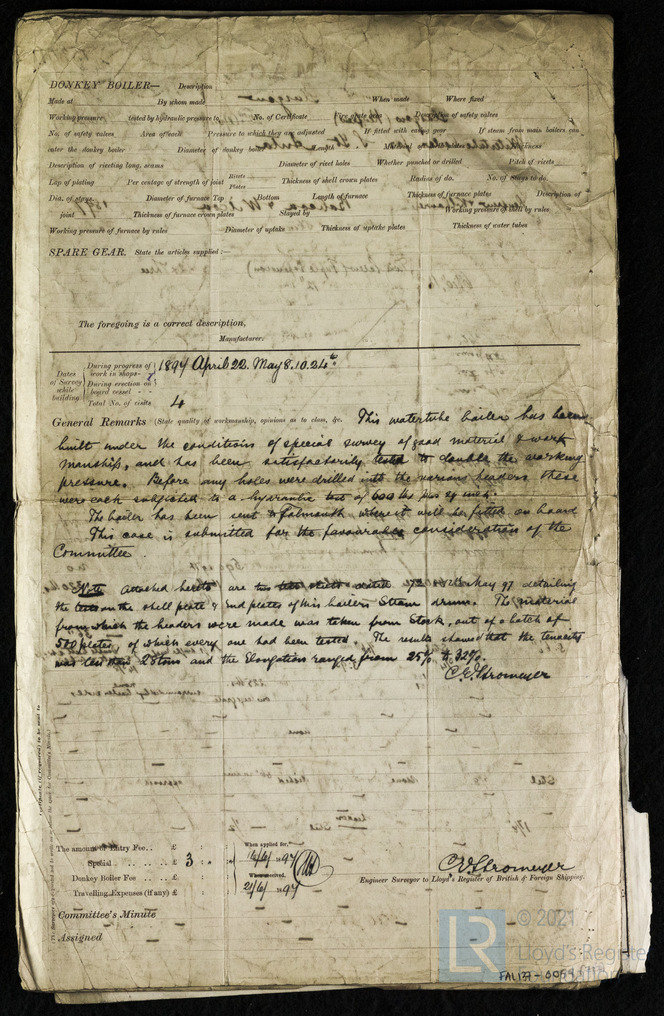 DONKEY BOILER— Description
Made at By whom made When made Where fixed
Working pressure tested by hydraulic pressure to No. of Certificate of safety valves
No. of safety valves Area of each Pressure to which they are adjusted If fitted with easing gear If steam from main boilers can
enter the donkey boiler Diameter of donkey boiler Length
Description of riveting long. seams Diameter of rivet holes Whether punched or drilled Pitch of rivets
Lap of plating Per centage of strength of joint Rivets Plates Thickness of shell crown plates Radius of do. No. of Stays to do.
Dia. of stays Diameter of furnace Top Bottom Length of furnace Thickness of furnace plates Description of
joint Thickness of furnace crown plates Stayed by Working pressure of shell by rules
Working pressure of furnace by rules Diameter of uptake Thickness of uptake plates Thickness of water tubes
SPARE GEAR. State the articles supplied:—
The foregoing is a correct description,
Manufacturer.
Dates of Survey while building
During progress of work in shops - 1897 April 22. May 8. 10. 24th
During erection on board vessel -
Total No. of visits 4
General Remarks (State quality of workmanship, opinions as to class, &c. This watertube boiler has been
built under the conditions of special survey of good material & work
manship, and has been satisfactorily tested to double the working
pressure. Before any holes were drilled into the various headers these
were each subjected to a hydraulic test of 600 lbs per sq inch.
The boiler has been sent to Falmouth where it will be fitted on board
This case is submitted for the favourable consideration of the
Committee.
Note Attached hereto are two May 97 detailing
the tests on the shell plate & End plates of this boilers Steam drum. The material
from which the headers were made was taken from Stock, out of a batch of
500 plates, of which every one had been tested. The results showed that the tenacity
was less than 28 tons and the Elongations ranged from 25% to 32%.
C. E. Stromeyer
The amount of Entry Fee.. £ : :
Special .. .. .. £ 3 : :
Donkey Boiler Fee .. .. £ : :
Travelling Expenses (if any) £ : :
When applied for,
16/6/1897
When received,
21/6/1897
C. E. Stromeyer
Engineer Surveyor to Lloyd's Register of British & Foreign Shipping.
Committee's Minute
Assigned
LR
© 2021
Lloyd's Register